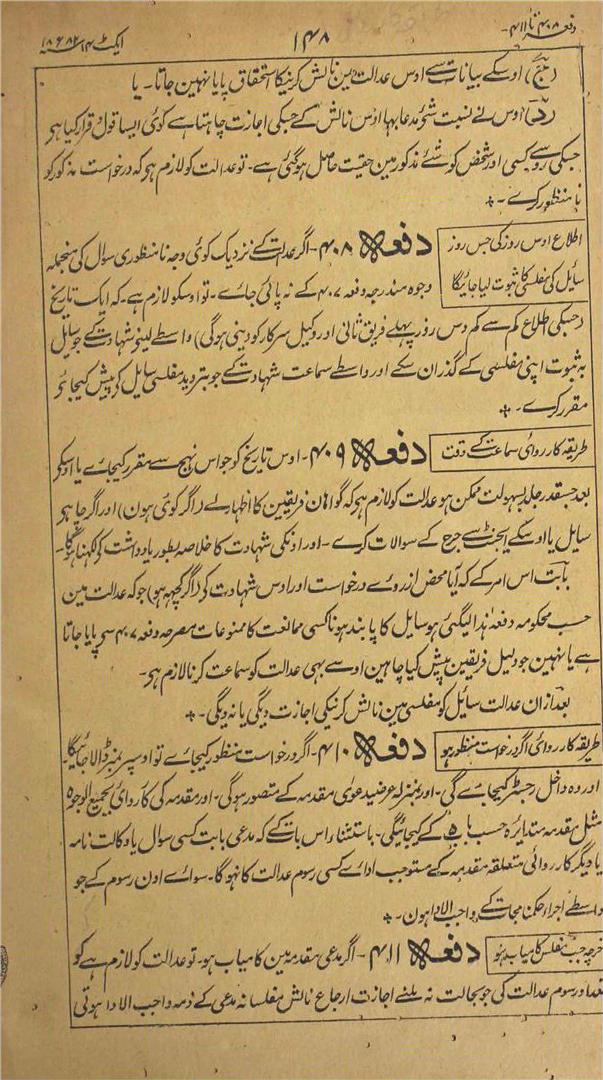 دفعہ ۴۰۸ تا ۴۱۱-
۱۴۸
ایکٹ ۱۴ ۱۸۸۲ء
(ج) اوسکے بیانات سے اوس عدالت مین نالش کرنیکا استحقاق پایا نہین جاتا۔ یا
(د) اوس نے نسبت شئے مدعا بہا اوس نالش کے جسکی اجازت چاہتا ہے کوئی ایسا قول قرار کیا ہو
جسکی رو سے کسی اور شخص کو شئے مذکور مین حقیت حاصل ہوگئی ہے۔ تو عدالت کو لازم ہو کہ درخواست مذکور کو
نامنظور کرے۔
اطلاع اوس روز کی جس روز
سایل کی مفلسی کا ثبوت لیا جائیگا
دفعہ ۴۰۸- اگر عدالت کے نزدیک کوئی وجہ نامنظوری سوال کی منجملہ
وجوہ مندرجہ دفعہ ۴۰۷ کے نہ پائی جاے۔ تو اوسکو لازم ہے۔ کہ ایک تاریخ
(جسکی اطلاع کم سے کم دس روز پہلے فریق ثانی اور وکیل سرکار کو دینی ہوگی) واسطے لینے شہادت کے جو سایل
بہ ثبوت اپنی مفلسی کے گذران سکے اور واسطے سماعت شہادت کے جو بتردید مفلسی سایل کو پیش کیجائے
مقرر کرے۔
طریقہ کارروائی سماعت کے وقت
دفعہ ۴۰۹- اوس تاریخ کو جو اس نہج سے مقرر کیجاے یا اوسکو
بعد جسقدر جلد بسہولت ممکن ہو عدالت کو لازم ہو کہ گواہان فریقین کا اظہار لے (اگر کوئی ہون) اور اگر چاہو
سایل یا اوسکے ایجنٹ سے جرح کے سوالات کرے۔ اور اونکی شہادت کا خلاصہ بطور یادداشت کو لکھنا ہوگا۔
بابت اس امر کے کہ آیا محض از روے درخواست اور اوس شہادت کی (اگر کچھہ ہو) جو کہ عدالت مین
حسب محکومہ دفعہ ہذا لیگئی ہو سایل کا پابند ہونا کسی ممانعت کا ممنوعات مصرحہ دفعہ ۴۰۷ سے پایا جاتا
ہے یا نہین جو دلیل فریقین پیش کیا چاہین اوسے بھی عدالت کو سماعت کرنا لازم ہو۔
بعد ازان عدالت سایل کو مفلسی مین نالش کرنیکی اجازت دیگی یا نہ دیگی۔
طریقہ کارروائی اگر درخواست منظور ہو
دفعہ ۴۱۰- اگر درخواست منظور کیجاے تو اوسپر نمبر ڈالا جائیگا۔
اور وہ داخل رجسٹر کیجاے گی۔ اور بمنزلہ عرضیدعویٰ مقدمہ کے متصور ہوگی۔ اور مقدمہ کی کارروائی بجمیع الوجوہ
مثل مقدمہ متدایرہ حسب باب ۵ کے کیجائیگی۔ باستثناء اس بات کے کہ مدعی بابت کسی سوال یا وکالت نامہ
یا دیگر کارروائی متعلقہ مقدمہ کے مستوجب اداے کسی رسوم عدالت کا نہوگا۔ سواے اون رسوم کے جو
واسطے اجراء حکمنامجات کے واجب الادا ہون۔
خرچہ جب مفلس کامیاب ہو
دفعہ ۴۱۱- اگر مدعی مقدمہ مین کامیاب ہو۔ تو عدالت کو لازم ہے کو
تعداد رسوم عدالت کی جو بحالت نہ ملنے اجازت ارجاع نالش مفلسانہ مدعی کے ذمہ واجب الادا ہوتی